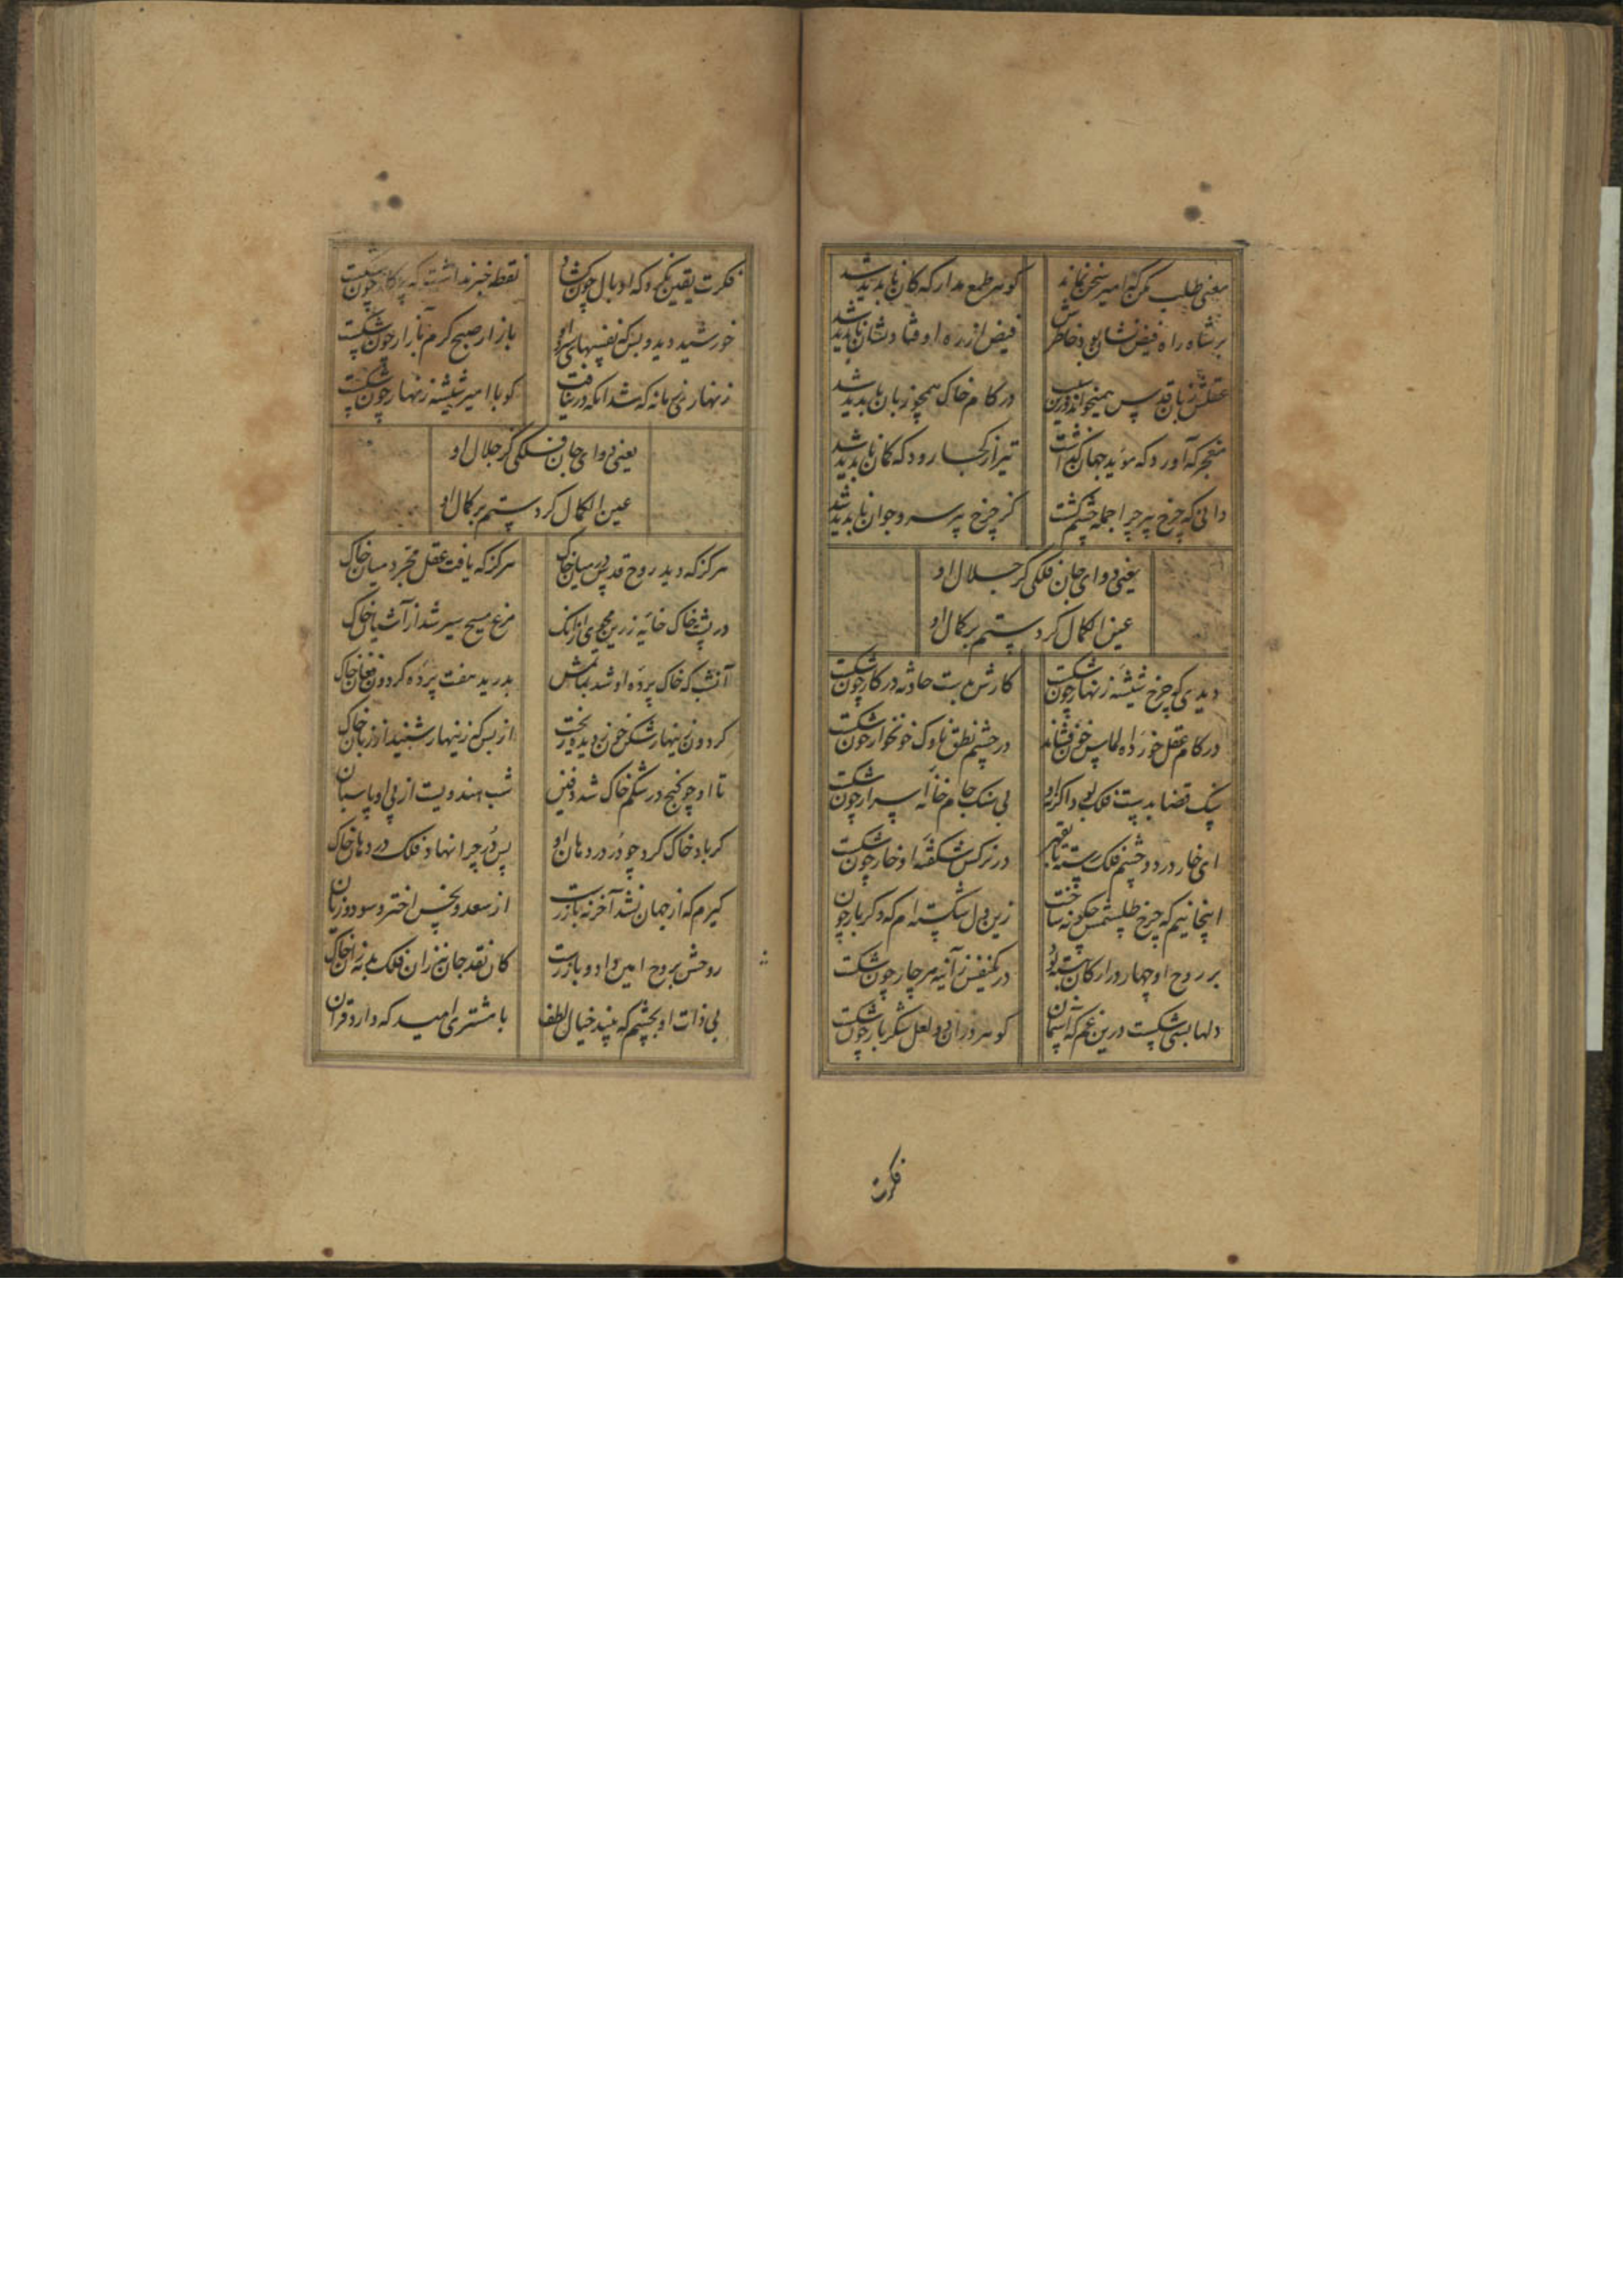 معنی طلب مکن که امیر سخن نماند
گوهر طمع مدار که کان ناپدید شد
بر شاه راه فیض نشان بود خاطرش
فیض از ره اوفتاد و نشان ناپدید شد
عقلش زبان قدس همیخواند و زین سبب
در کام خاک همچو زبان ناپدید شد
معجز که آورد که مؤید جهان گذاشت
تیر از کجا رود که کمان ناپدید شد
دانی که چرخ پیر چرا جمله چشم گشت
کز چرخ پیر سرو جوان ناپدید شد
یعنی دوای جان فلکی کز جلال او
عین الکمال کرد ستم بر کمال او
دیدی که چرخ شیشه زنهار چون شکست
کارش بدست حادثه در کار چون شکست
در کام عقل خورده الماس خون فشاند
در چشم نطق ناوک خونخوار چون شکست
سنگ قضا بدست فلک بود اگر نه او
بی سنگ جام خانه اسرار چون شکست
ای خار درد و چشم فلک رسته تا بقهر
در نرگس شکفته او خار چون شکست
اینجا نیم که چرخ طلسمش چگونه ساخت
زین دل شکسته ام که دگر بار چون
بر روح او چهار در ارکان بسته بود
در یکنفس ز آینه هر چار چون شکست
دلها بسی شکست درین غم که آسمان
گوهر در آن دو لعل شکربار چون شکست
فکرت
فکرت یقین نکرد که او بال چون گشاد
نقطه خبر نداشت که پرگار چون شکست
خورشید دید و بس که نفسهای سرد او
بازار صبح کرم بآزار چون شکست
زنهار زی زمانه که شد آنکه در نیافت
کو با امیر شیشه زنهار چون شکست
یعنی دوای جان فلکی کز جلال او
عین الکمال کرد ستم بر کمال او
هرگز که دید روح قدس در میان خاک
هرگز که یافت عقل مجرد میان خاک
در پشت خاک خایه زرین مجوی از آنک
مرغ مسیح سیر شد از آشیان خاک
آنشب که خاک پرده او شد بماتمش
بدرید هفت پرده گردون فغان خاک
گردون زینهار شکن خون ز دیده ریخت
از بس که زینهار شنید از زبان خاک
تا او چو گنج در شکم خاک شد دفین
شب هندویست از پی او پاسبان
گر باد خاک کرد چو در در دهان او
پس در چرا نهاد فلک در دهان خاک
گیرم که از جهان نشد آخر نه بازرست
از سعد و نحس اختر و سود و زیان
روحش بروح امین داد و بازرست
کان نقد جان نبرزان فلک بد نه زان خاک
بی ذات او بچشم که بیند خیال لطف
با مشتری امید که دارد قران